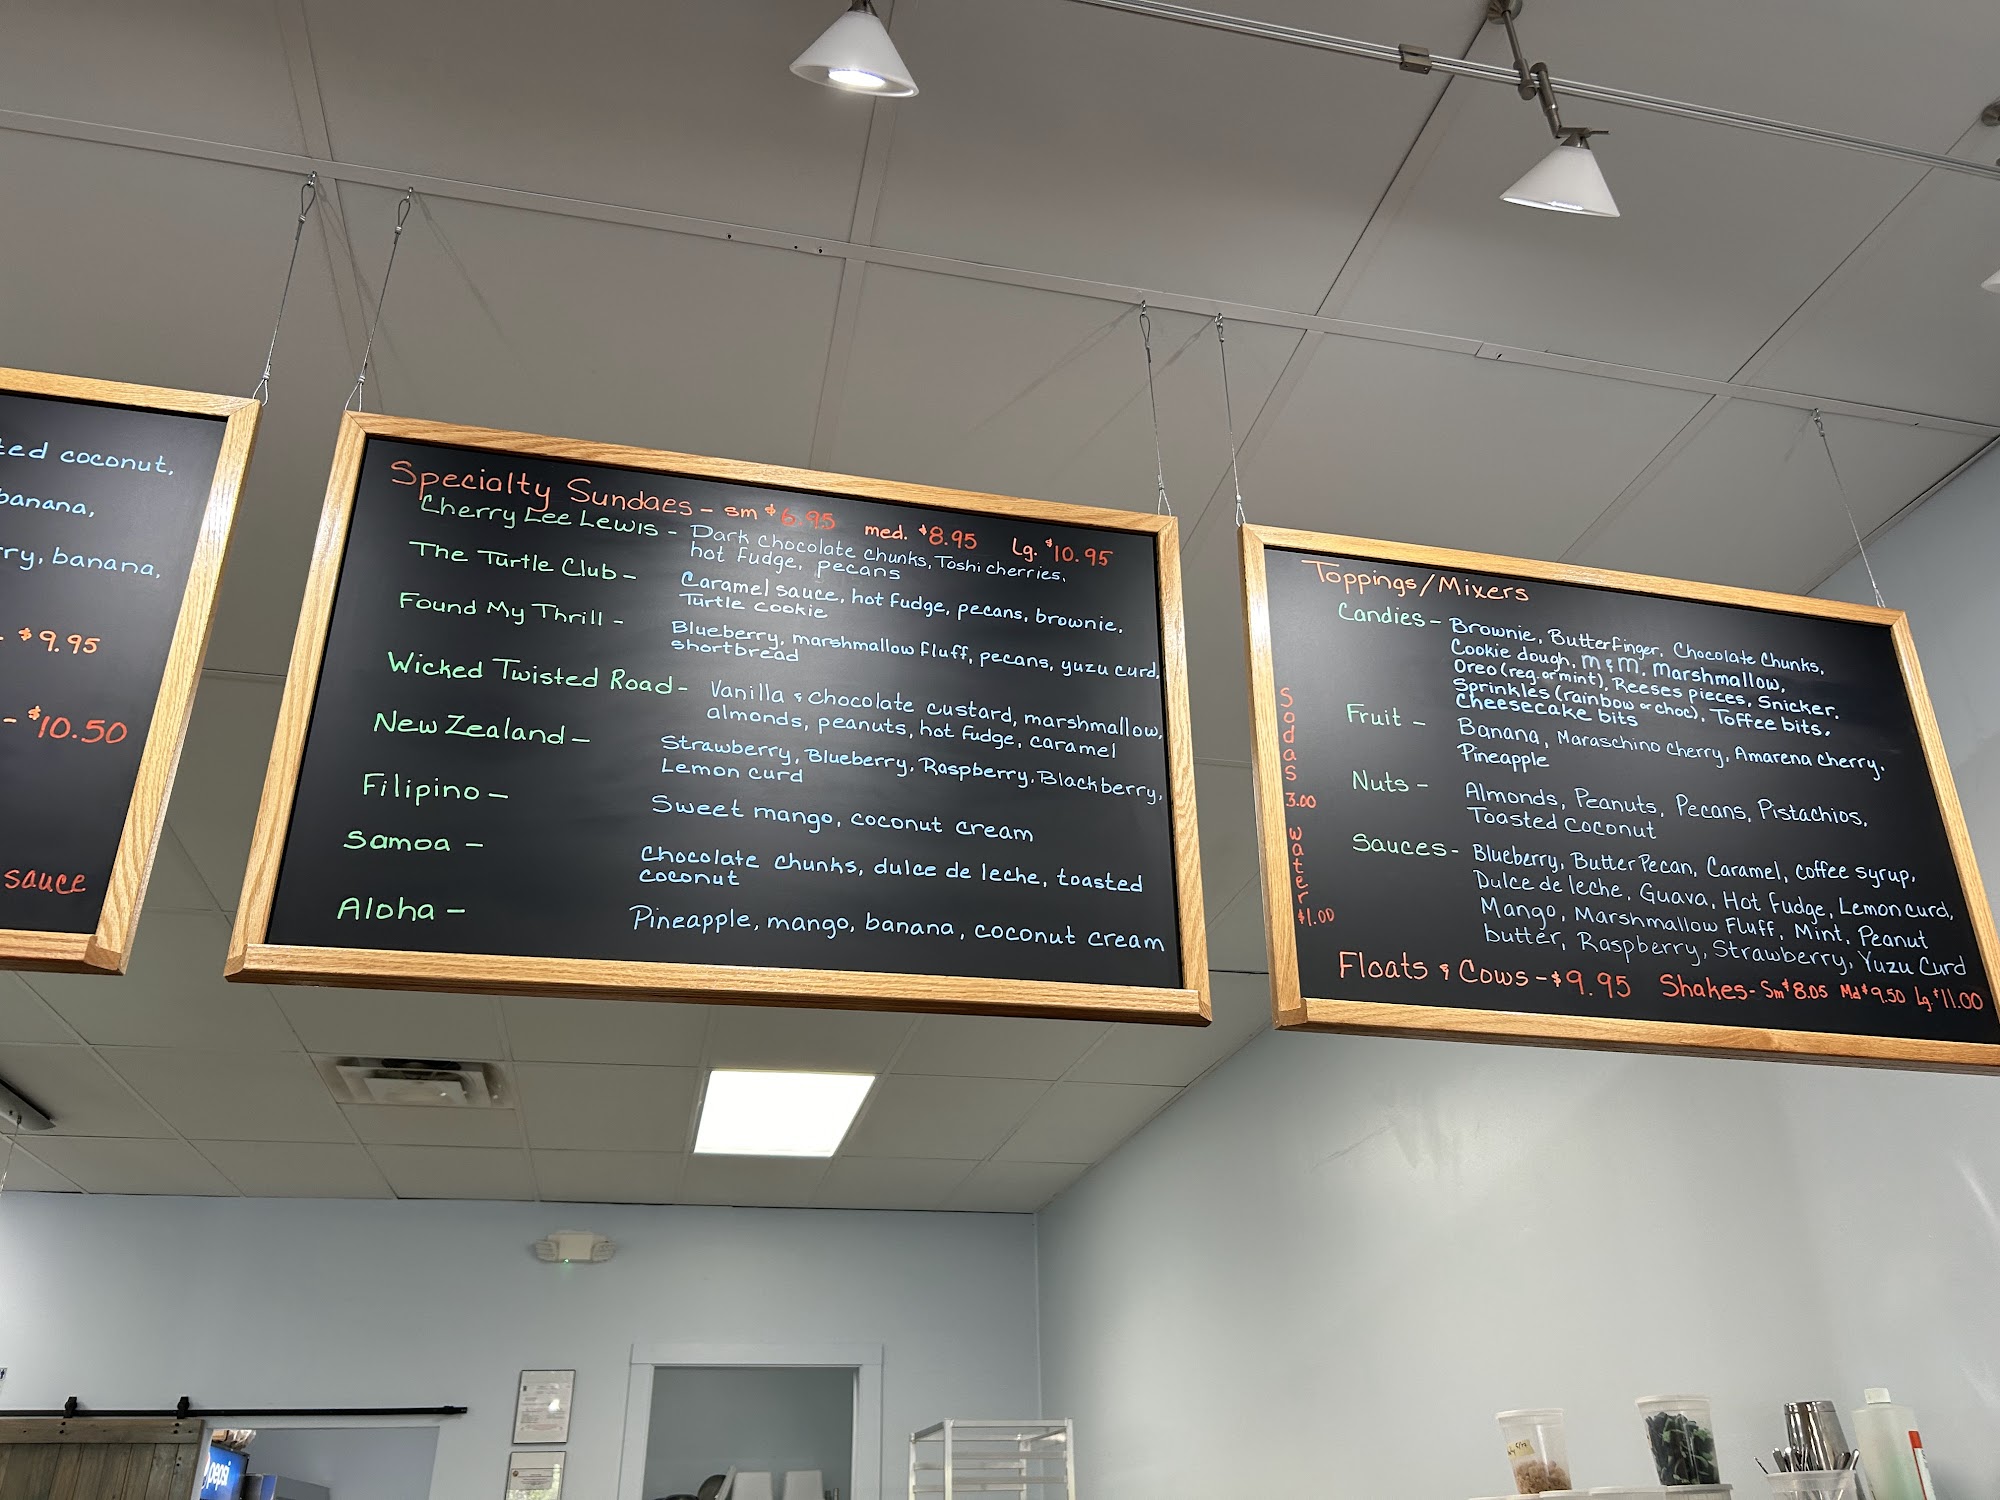 ted coconut.
banana,
rry, banana,
. $9.95
- $10.50
sauce
Specialty Sundaes - sm $6.95 med. $8.95 Lg. $10.95
Cherry Lee Lewis - Dark chocolate chunks, Toshi cherries,
hot fudge, pecans
The Turtle Club - Caramel sauce, hot fudge, pecans, brownie,
Turtle cookie
Found My Thrill - Blueberry, marshmallow fluff, pecans, yuzu curd,
shortbread
Wicked Twisted Road - Vanilla & chocolate custard, marshmallow,
almonds, peanuts, hot fudge, caramel
New Zealand - Strawberry, Blueberry, Raspberry, Blackberry,
Lemon curd
Filipino - Sweet mango, coconut cream
Samoa - Chocolate chunks, dulce de leche, toasted
coconut
Aloha - Pineapple, mango, banana, coconut cream
Toppings/Mixers
Candies - Brownie, Butterfinger, Chocolate Chunks,
Cookie dough, M & M, Marshmallow,
Oreo (reg. or mint), Reeses pieces, Snicker,
Sprinkles (rainbow or choc), Toffee bits,
Cheesecake bits
Fruit - Banana, Maraschino cherry, Amarena cherry,
Pineapple
Nuts - Almonds, Peanuts, Pecans, Pistachios,
Toasted Coconut
Sauces - Blueberry, Butter Pecan, Caramel, coffee syrup,
Dulce de leche, Guava, Hot Fudge, Lemon curd,
Mango, Marshmallow Fluff, Mint, Peanut
butter, Raspberry, Strawberry, Yuzu Curd
Floats & Cows - $9.95 Shakes - Sm $8.05 Md $9.50 Lg. $11.00
Sodas 3.00 water $1.00
pepsi